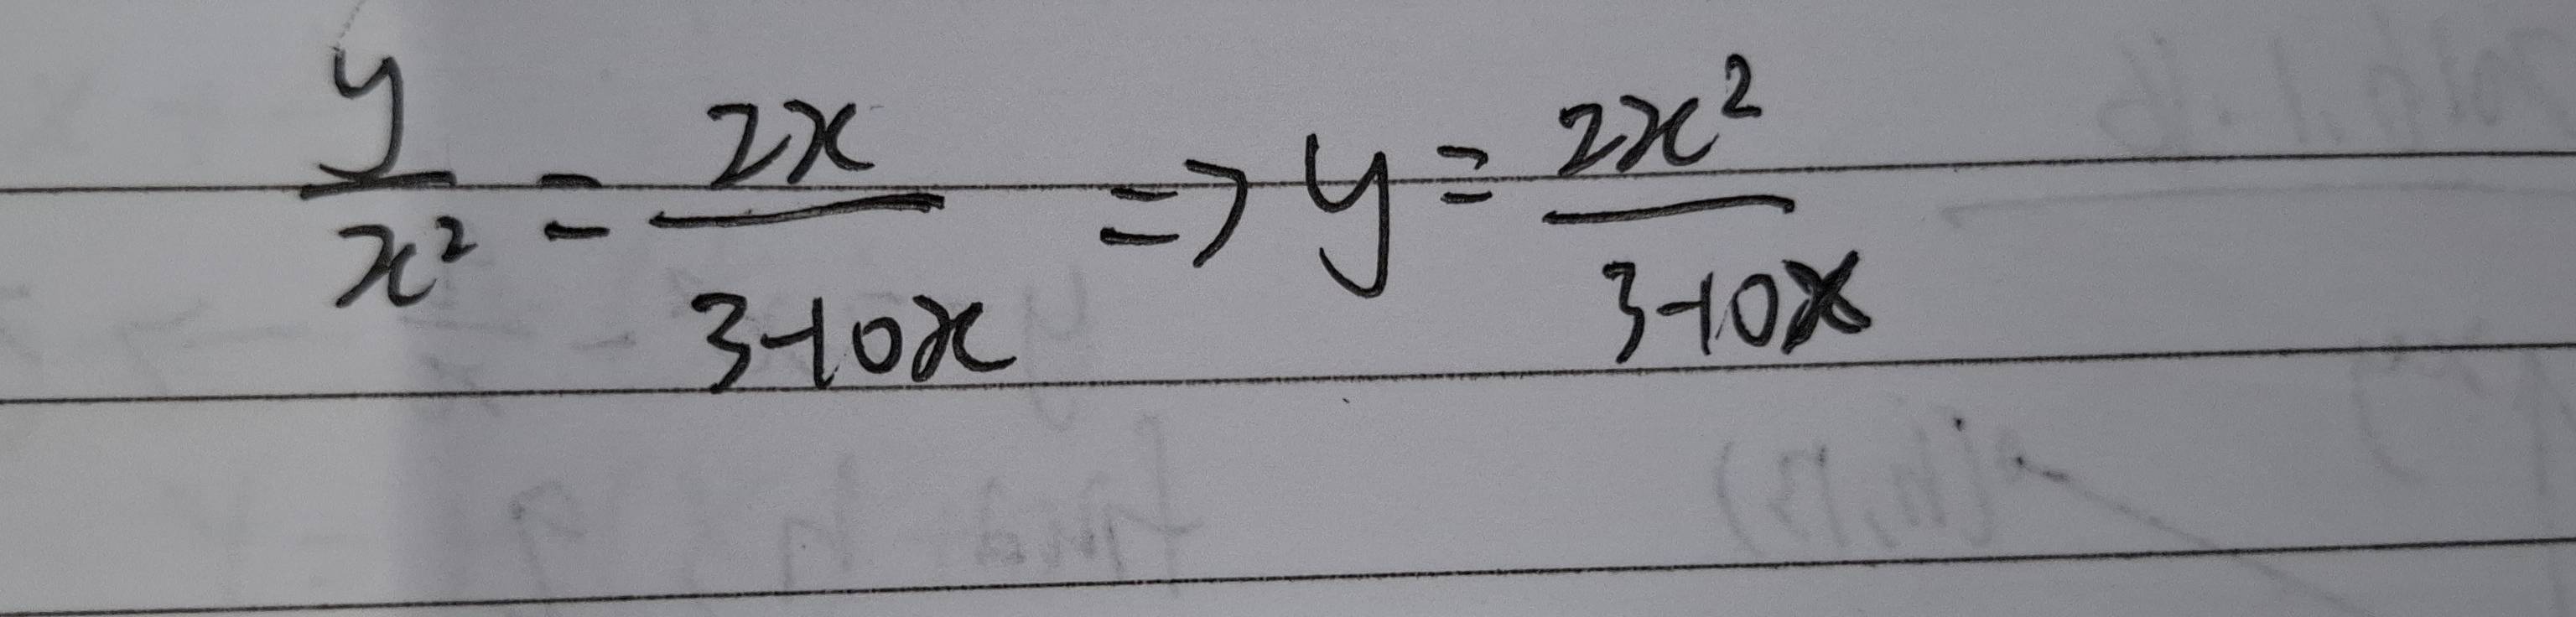 y/x² = 2x/(3-10x) => y = 2x²/(3-10x)